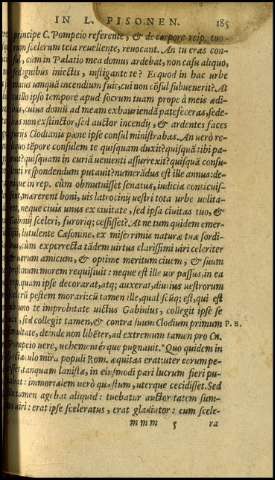 IN L. PISONEN. 185
principe C. Pompeio referente, & de corpore reip. tuo-
rum scelerum tela reuellente, reuocant. An tu eras con-
sul, cum in Palatio mea domus ardebat, non casu aliquo,
ignibus iniectis, instigante te? Ecquod in hac urbe
unquam incendium fuit, cui non cósul subuenerit? At
illo ipso tempore apud socrum tuam prope à meis ædi-
domum ad meam exhauriendã patefeceras, sede-
non exstinctor, sed auctor incendij, & ardentes faces
Clodianis pæne ipse consul ministrabas. An uerò re-
tẽpore consulem te quisquam duxit? quisquã tibi pa-
quisquam in curiã uenienti assurrexit? quisquã consu-
respondendum putauit? numerãdus est ille annus de-
in rep. cũm obmutuisset senatus, iudicia conticuis-
mœrerent boni, uis latrocinij uestri tota urbe uolita-
neque ciuis unus ex ciuitate, sed ipsa ciuitas tuo, &
sceleri, furoriq; cessisset. At ne tum quidem emer-
lutulente Cæsonine, ex miserrimis naturæ tuæ sordi-
cũm experrecta tãdem uirtus clarissimi uiri celeriter
uerum amicum, & optime meritum ciuem, & suum
morem requisiuit: neque est ille uir passus in ea
quam ipse decorarat, atq; auxerat, diutius uestrorum
pestem morari: cũ tamen ille, qualiscũq; est, qui est
uno te improbitate uictus Gabinius, collegit ipse se
sed collegit tamen, & contra suum Clodium primum P. H.
deinde non libẽter, ad extremum tamen pro Cn.
Pompeio uere, uehementérque pugnauit. Quo quidem in
mira populi Rom. æquitas erat: uter eorum pe-
tanquam lanista, in eiusmodi pari lucrum fieri pu-
immortalem uerò quæstum, uterque cecidisset. Sed
tamen agebat aliquid: tuebatur auctoritatem sum-
uiri: erat ipse sceleratus, erat gladiator: cum scele-
mmm 5 ra